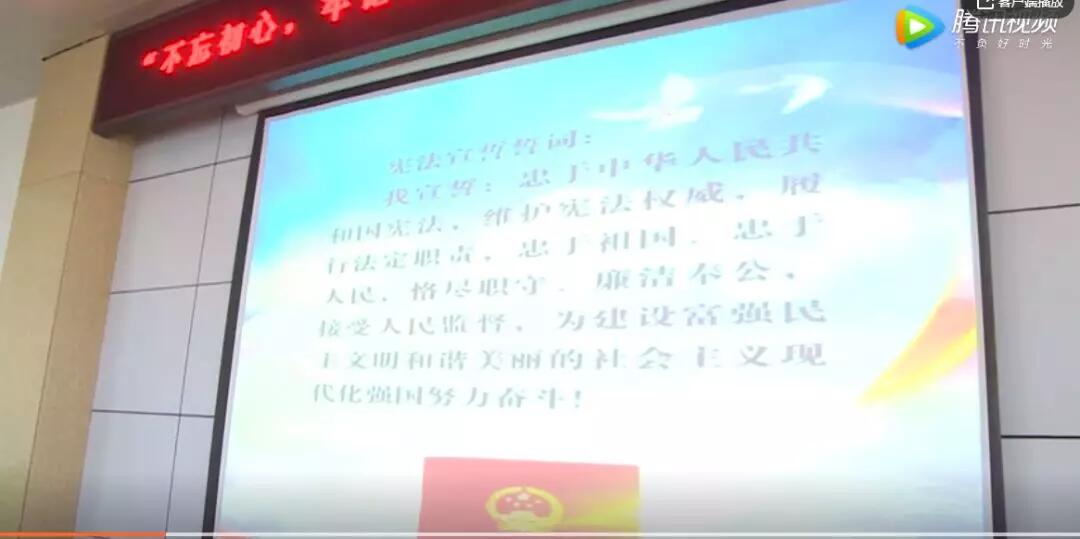 客户端播放
腾讯视频
不负好时光
“不忘初心，牢记
宪法宣誓誓词：
我宣誓：忠于中华人民共
和国宪法，维护宪法权威，履
行法定职责，忠于祖国、忠于
人民，恪尽职守、廉清奉公，
接受人民监督，为建设富强民
主文明和谐美丽的社会主义现
代化强国努力奋斗！